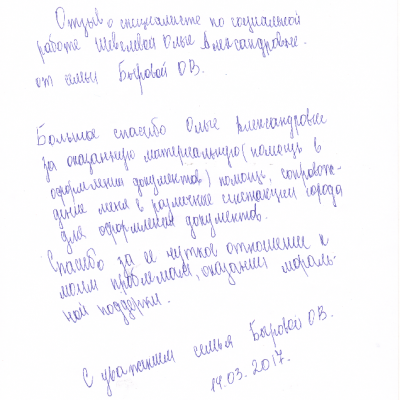 Отзыв о специалисте по социальной
работе Шевелевой Ольге Александровне.
от семьи Быровой О.В.
Большое спасибо Ольге Александровне
за оказанную материальную (помощь в
оформлении документов) помощь, сопровож-
дение меня в различные инстанции города
для оформления документов.
Спасибо за ее чуткое отношение к
моим проблемам, оказании мораль-
ной поддержки.
С уважением семья Быровой О.В.
19.03.2017.